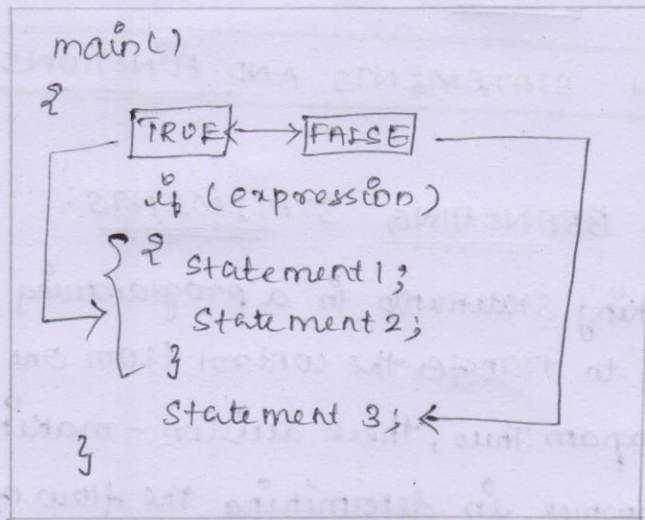 main()
{
TRUE FALSE
if (expression)
{
statement 1;
statement 2;
}
statement 3;
}